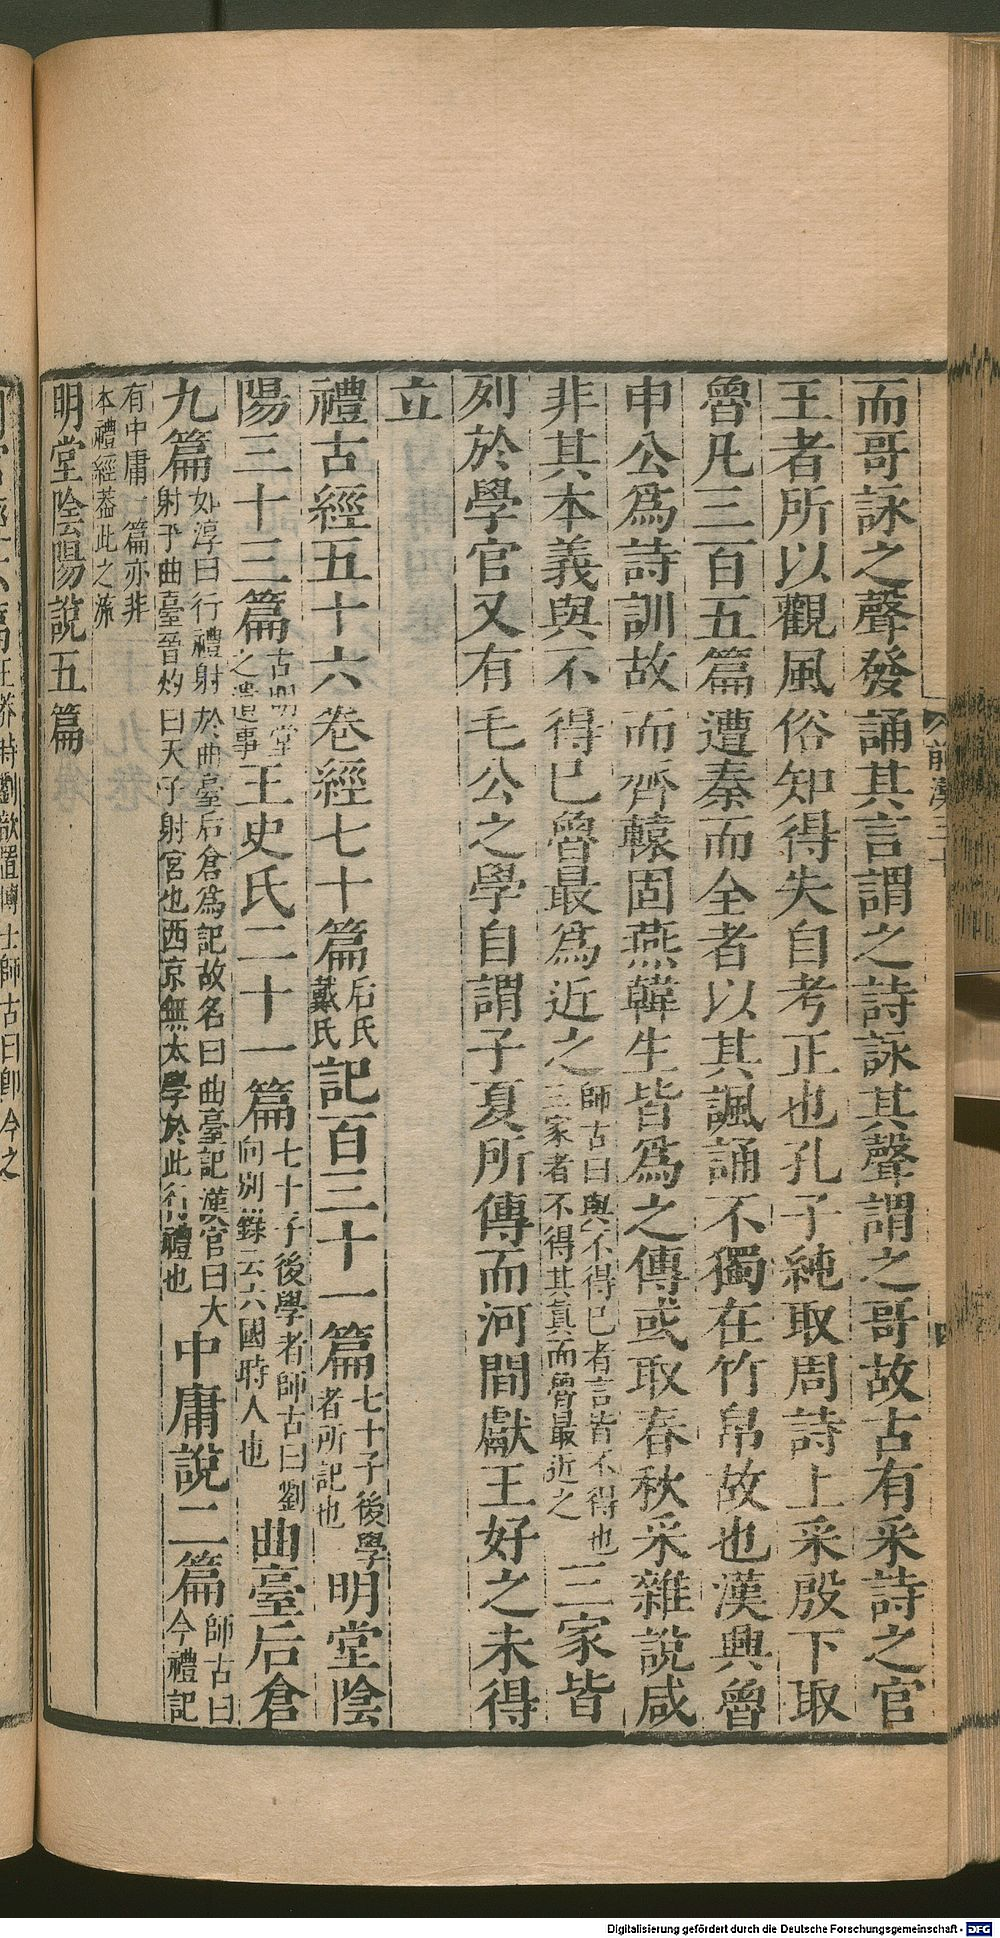 而哥詠之聲發誦其言謂之詩詠其聲謂之哥故古有采詩之官
王者所以觀風俗知得失自考正也孔子純取周詩上采殷下取
魯凡三百五篇遭秦而全者以其諷誦不獨在竹帛故也漢興魯
申公爲詩訓故而齊轅固燕韓生皆爲之傳或取春秋采雜說咸
非其本義與不得已魯最爲近之師古曰與不得已者言皆不得也三家者不得其真而魯最近之三家皆
列於學官又有毛公之學自謂子夏所傳而河間獻王好之未得
立
禮古經五十六卷經七十篇后氏戴氏記百三十一篇七十子後學者所記也明堂陰
陽三十三篇古明堂之遺事王史氏二十一篇七十子後學者師古曰劉向別錄云六國時人也曲臺后倉
九篇如淳曰行禮射於曲臺后倉爲記故名曰曲臺記漢官曰大射于曲臺晉灼曰天子射宮也西京無太學於此行禮也中庸說二篇師古曰今禮記
有中庸一篇亦非本禮經葢此之流
明堂陰陽說五篇
前漢三十
四
王莽時劉歆置博士師古曰卽今之
Digitalisierung gefördert durch die Deutsche Forschungsgemeinschaft - DFG